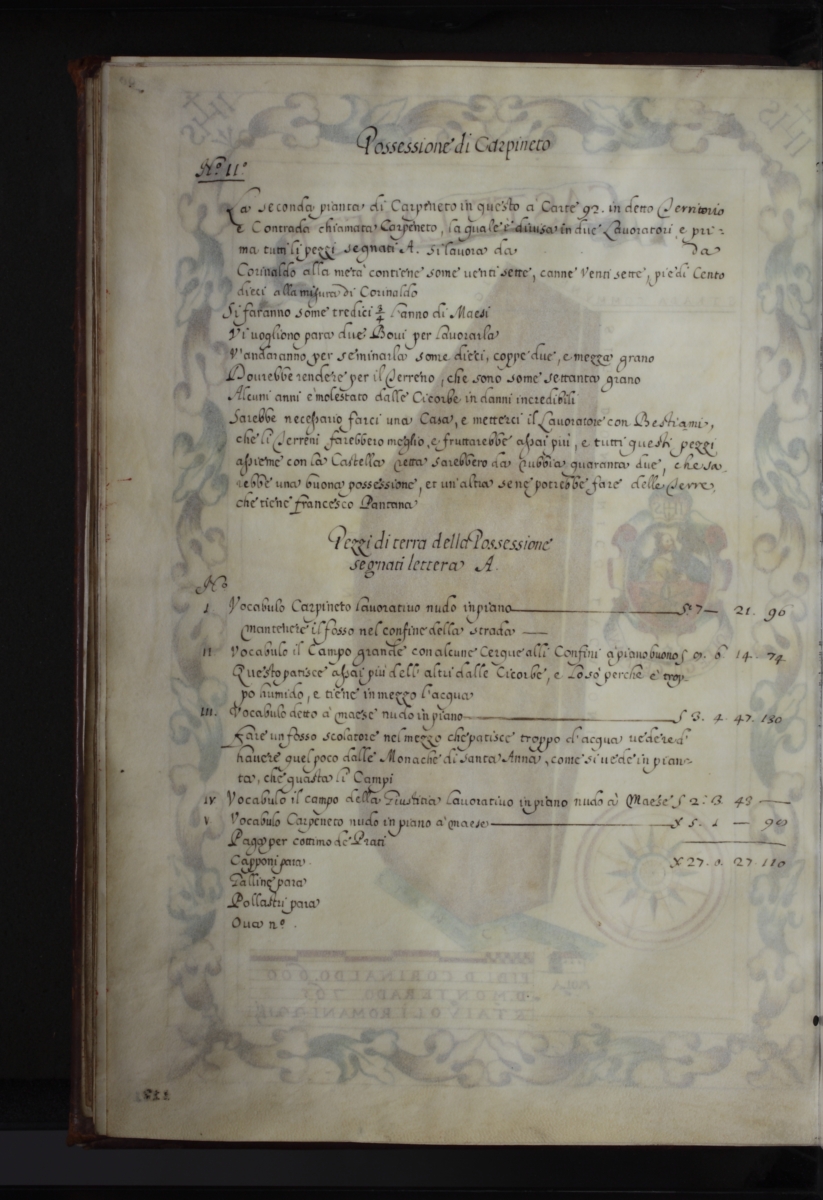 Possessione di Carpineto
N.º 11º
La seconda pianta di Carpeneto in questo à Carte 92. in detto Territorio
è Contrada chiamata Carpeneto, la quale è divisa in due Lavoratori e pri:
ma tutti li pezzi segnati A. si lavora da da
Corinaldo alla metà contiene some venti sette, canne venti sette, piedi Cento
dieci alla misura di Corinaldo
Si faranno some tredici 3/4 l'anno di Maesi
Vi vogliono para due Bovi per lavorarla
V'andaranno per seminarla some dieci, coppe due, e mezza grano
Dovrebbe rendere per il Terreno, che sono some settanta grano
Alcuni anni è molestato dalle Cicorbe in danni incredibili
Sarebbe necessario farci una Casa, e metterci il Lavoratore con Bestiami,
che li Terreni farebbero meglio, e fruttarebbe assai più, e tutti questi pezzi
assieme con la Castella retta sarebbero da rubbia quaranta due, che sa,
rebbe una buona possessione, et un'altra se ne potrebbe fare delle Terre,
che tiene Francesco Pantana
Pezzi di terra della Possessione
segnati lettera A.
N.º
I Vocabulo Carpineto lavorativo nudo in piano S. 7 — 21. 96
mantenere il fosso nel confine della strada
II Vocabulo il Campo grande con alcune Cerque alli Confini à piano buono S 9. 6 14. 74
Questo patisce assai più dell'altri dalle Cicorbe, e loso perche è trop
po humido, e tiene in mezzo l'acqua
III. Vocabulo detto à maese nudo in piano S 3. 4. 47. 130
Fare un fosso scolatore nel mezzo che patisce troppo d'acqua vedere d'
havere quel poco dalle Monache di Santa Anna, come si vede in pian-
ta, che guasta li Campi
IV Vocabulo il campo della Giustitia lavorativo in piano nudo à Maese S 2. 3 48 —
V Vocabulo Carpeneto nudo in piano à maese S 5. 1 — 90
Paga per cottimo de Prati
Capponi para S 27. 0. 27. 110
Galline para
Pollastri para
Ova n.º